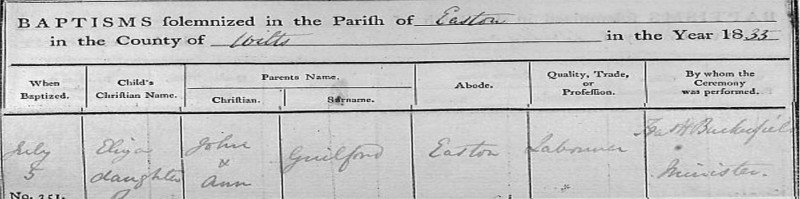 BAPTISMS solemnized in the Parish of Easton
in the County of Wilts in the Year 1833
When Baptized.
Child's Christian Name.
Parents Name.
Christian.
Surname.
Abode.
Quality, Trade, or Profession.
By whom the Ceremony was performed.
July 5
Eliza daughter
John & Ann
Guilford
Easton
Labourer
Minister.
No. 351.